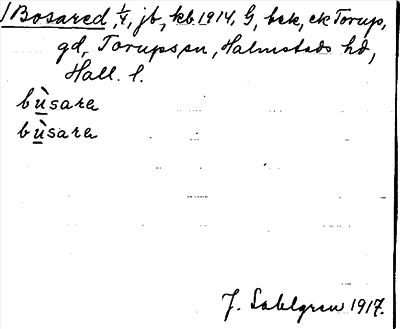 Bosared, 1/4, jb, kb. 1914, G, bsk, ek Torup,
gd, Torups sn, Halmstads hd,
Hall. l.
bù̲sare
bù̲sare
J. Sahlgren 1917.